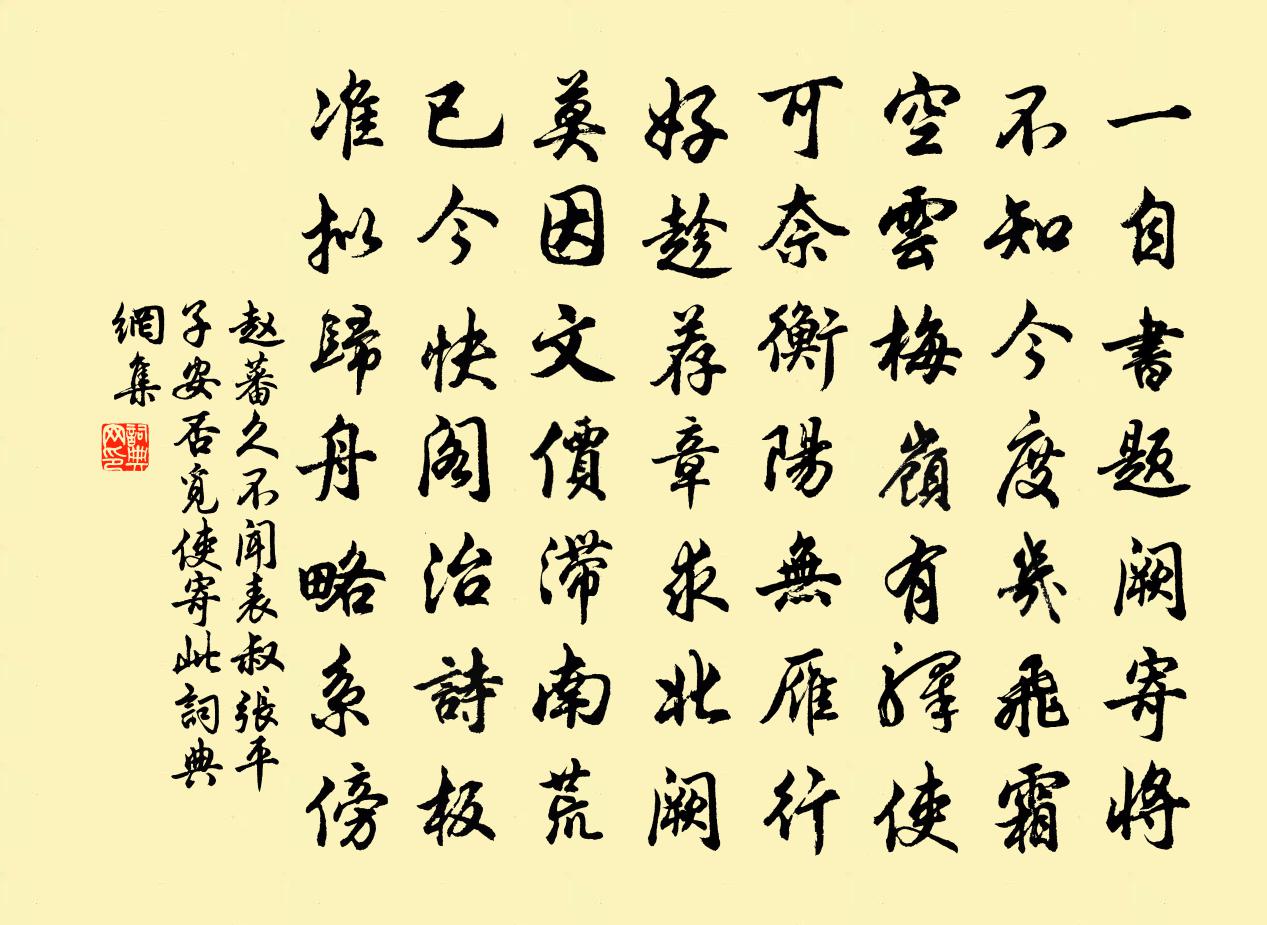 一自書題阙寄將
不知今度幾飛霜
空雲梅嶺有驛使
可奈衡陽無雁行
好趁荐章求北阙
莫因文價滯南荒
已今快阁治詩板
准拟歸舟略系傍
赵蕃久不闻表叔張平
子安否覓使寄此詞典
網集
詞典网印